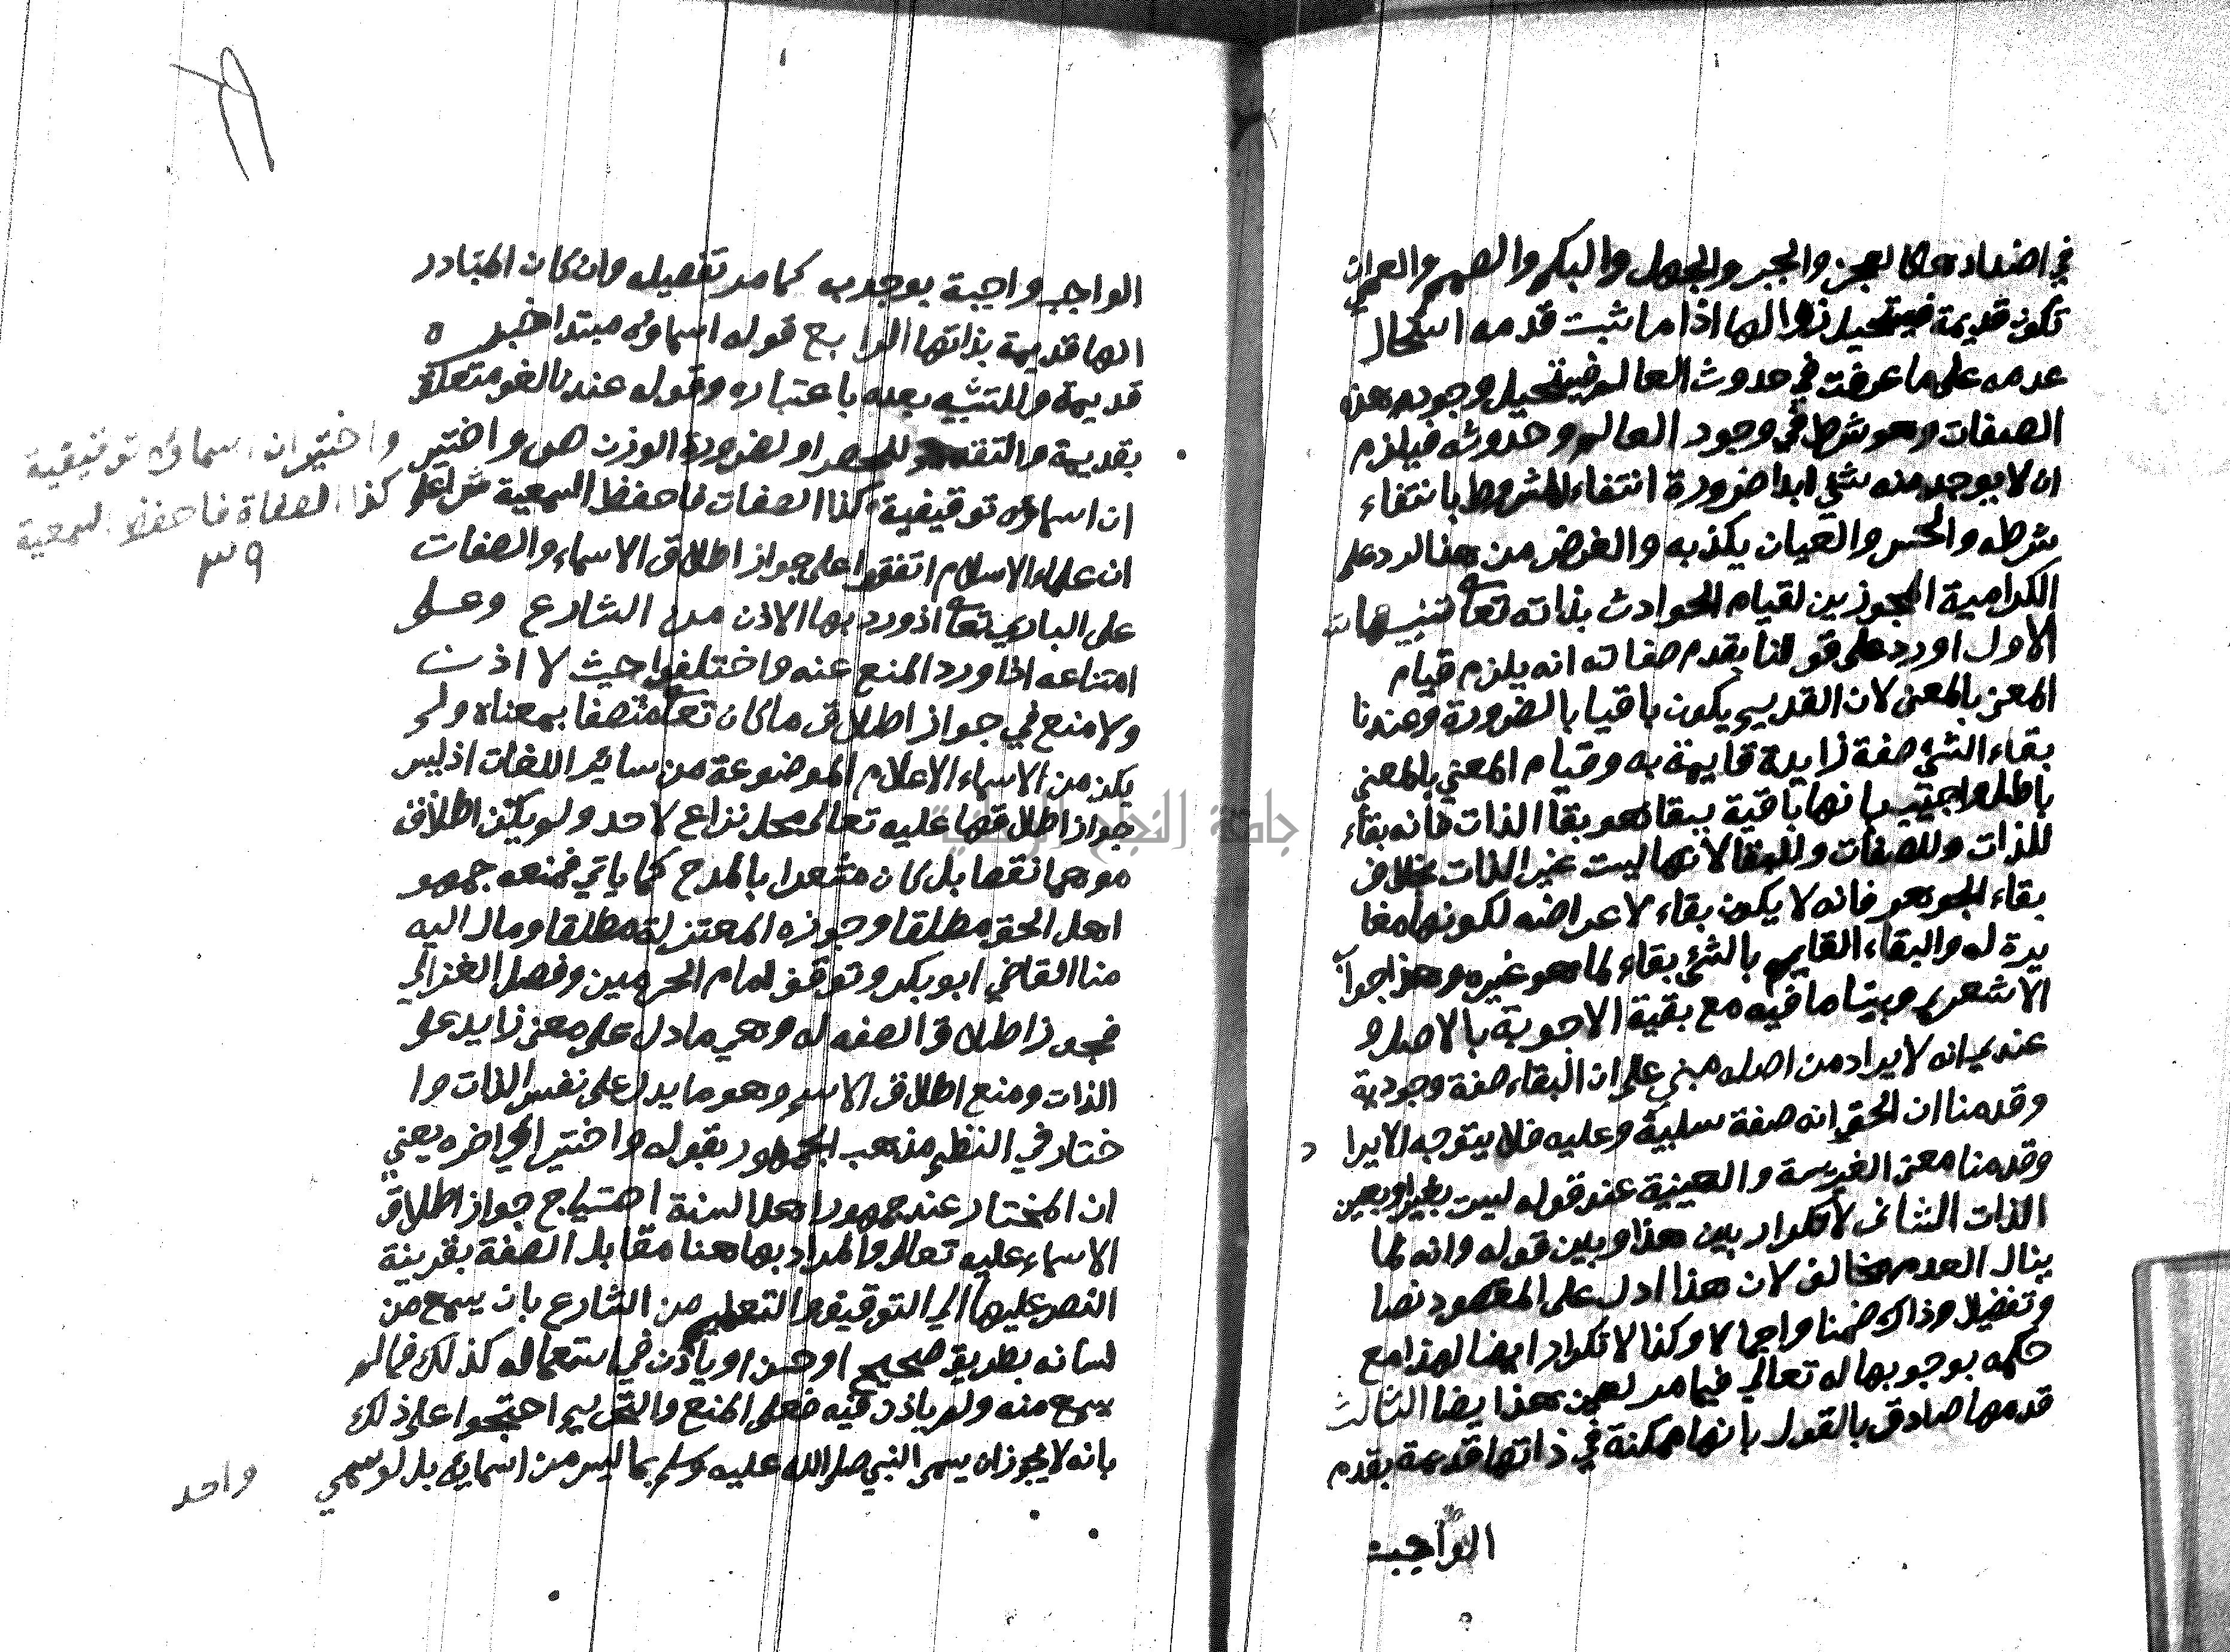 في اضدادها كالعجز والجبر والجهل والبكم والصمم والعمى ان
تكون قديمة فيستحيل زوالها اذا ما ثبت قدمه استحال
عدمه على ما عرفت في حدوث العالم فيستحيل وجوده بهذه
الصفات وهو شرط في وجود العالم وحدوثه فيلزم
ان لا يوجد منه شئ ابدا ضرورة انتفاء المشروط بانتفاء
شرطه والحس والعيان يكذبه والغرض من هنا الرد على
الكرامية المجوزين لقيام الحوادث بذاته تعالى تنبيهات
الاول اورد على قولنا بقدم صفاته انه يلزم قيام
المعنى بالمعنى لان القديم يكون باقيا بالضرورة وعندنا
بقاء الشئ صفة زايدة قايمة به وقيام المعني بالمعني
باطل واجيب بانها باقية ببقا هو بقا الذات فانه بقاء
للذات وللصفات وللبقا لانها ليست غير الذات بخلاف
بقاء الجوهر فانه لا يكون بقاء لاعراضه لكونها مغا
يرة له والبقاء القايم بالشئ بقاء لما هو غيره وهذا جواب
الاشعري وبينا ما فيه مع بقية الاجوبة بالاصل و
عندي انه لا يراد من اصله مبني على ان البقاء صفة وجودية
وقدمنا ان الحق انه صفة سلبية وعليه فلا يتوجه الايرا د
وقدمنا معنى الغيرية والعينية عند قوله ليست بغير او بعين
الذات الثانى لا تكرار بين هذا وبين قوله وانه لما
ينال العدم مخالف لان هذا ادل على المقصود نصا
وتفضيلا وذاك ضمنا واجمالا وكذا لا تكرار ايضا لهذا مع
حكمه بوجوبها له تعالي فيما مر لعين هذا ايضا الثالث
قدمها صادق بالقول بانها ممكنة في ذاتها قديمة بقدم
الواجب
الواجب واجبة بوجوبه كما مر تفصيله وان كان المتبادر
انها قديمة بذاتها الرابع قوله اسماؤه مبتدا خبره
قديمة والتنبيه بعده باعتباره وقوله عندنا لغو متعلق
بقديمة والتقديم للحصر او لضرورة الوزن ص واختير
ان اسماؤه توقيفية كذا الصفات فاحفظ السمعية ش اعلم
ان علماء الاسلام اتفقوا على جواز اطلاق الاسماء والصفات
على الباري تعالى اذ ورد بها الاذن من الشارع وعلى
امتناعه اذا ورد المنع عنه واختلفوا حيث لا اذن
ولا منع في جواز اطلاق ما كان تعالى متصفا بمعناه ولم
يكن من الاسماء الاعلام الموضوعة من ساير اللغات اذ ليس
جواز اطلاقها عليه تعالى محل نزاع لاحد ولم يكن اطلاقه
موهما نقصا بل كان مشعرا بالمدح كما ياتي فمنعه جمهو
اهل الحق مطلقا وجوزه المعتزلة مطلقا ومال اليه
منا القاضي ابو بكر وتوقف امام الحرمين وفصل الغزالي
فجوز اطلاق الصفه له وهي ما دل على معنى زايد على
الذات ومنع اطلاق الاسم وهو ما يدل على نفس الذات وا
ختار في النظم مذهب الجمهور بقوله واختير الي اخره يعني
ان المختار عند جمهور اهل السنة احتياج جواز اطلاق
الاسماء عليه تعالى والمراد بها هنا مقابل الصفة بقرينة
النص عليها الي التوقيف والتعليم من الشارع بان يسمع من
لسانه بطريق صحيح او حسن او ياذن في استعماله كذلك فما لم
يسمع منه ولم ياذن فيه فعلى المنع والتحريم احتجوا على ذلك
بانه لا يجوز ان يسمى النبي صلى الله عليه وسلم بما ليس من اسمايه بل لو سمي
واحد
واختير ان اسمائه توقيفية
كذا الصفاة فاحفظ السمعية
٣٩
جامعة النجاح الوطنية